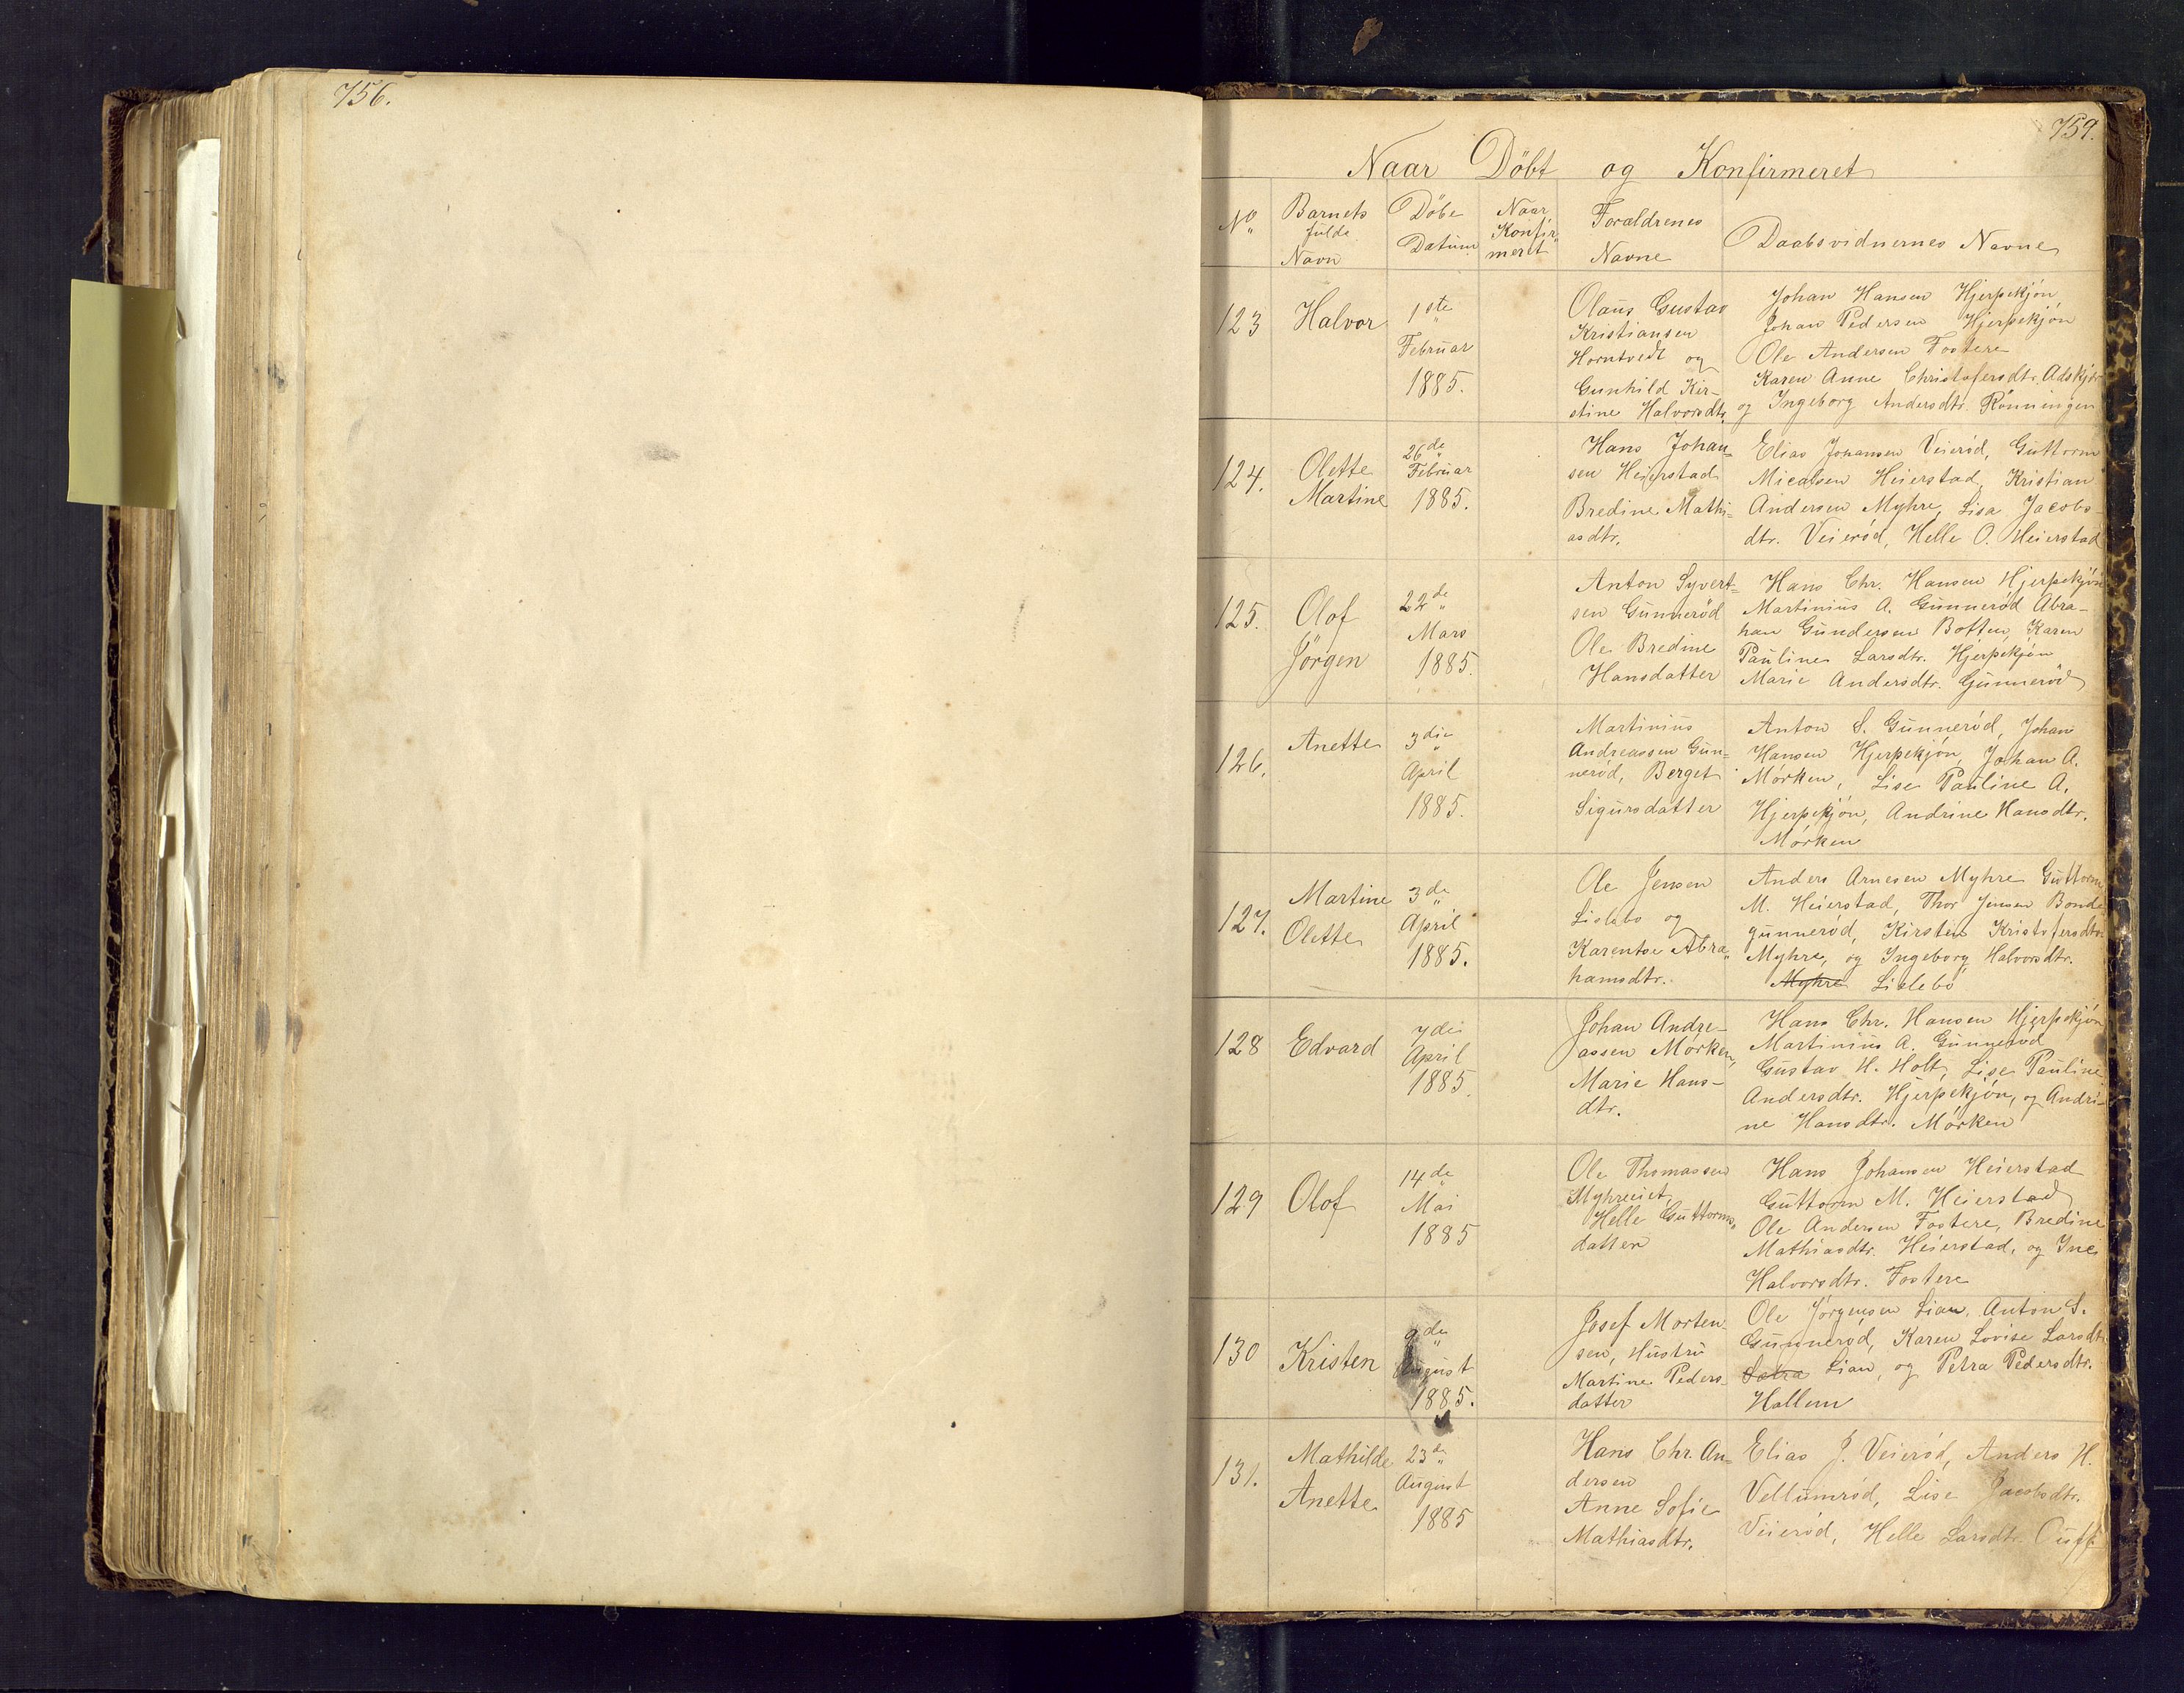 756.
759.
Naar Döbt og Konfirmeret
No
Barnets fulde Navn
Döbe Datum
Naar Konfirmeret
Forældrenes Navne
Daabsvidnernes Navne
123
Halvor
1ste
Februar
1885.
Olaus Gustav
Kristiansen
Horntvedt og
Gunhild Kir-
stine Halvorsdtr.
Johan Hansen Hjerpekjón
Johan Pedersen Hjerpekjón
Ole Andersen Fostere
Karen Anne Christofersdtr.
og Ingeborg Andersdtr. Rönningen
124.
Olette
Martine
26de
Februar
1885.
Hans Johan-
sen Heierstad
Bredine Mathi-
asdtr.
Elias Johansen Veieród, Guttorm
Micalsen Heierstad, Kristian
Andersen Myhre, Lisa Jacobs-
dtr. Veieród, Helle O. Heierstad
125.
Olof
Jörgen
22de
Mars
1885.
Anton Syvert-
sen Gunneröd
Ole Bredine
Hansdatter
Hans Chr. Hansen Hjerpekjón
Martinius A. Gunneröd Abra-
han Gundersen Botten, Karen
Pauline Larsdtr. Hjerpekjón
Marie Andersdtr. Gunneröd
126.
Anette
3die
April
1885.
Martinius
Andreassen Gun-
neród, Berget
Sigursdatter
Anton S. Gunneród, Johan
Hansen Hjerpekjón, Johan A.
Mórken, Lise Pauline A.
Hjerpekjón, Andrine Hansdtr.
Mórken
127.
Martine
Olette
3de
April
1885.
Ole Jensen
Lislebo og
Karentse Abra-
hamsdtr.
Anders Arnesen Myhre Guttorm
M. Heierstad, Thor Jensen Bonde
gunneród, Kirsten Kristofersdtr.
Myhre, og Ingeborg Halvorsdtr.
Myhre Lislebo
128
Edvard
7de
April
1885.
Johan Andre-
assen Mörken,
Marie Hans-
dtr.
Hans Chr. Hansen Hjerpekjón
Martinius A. Gunneröd
Gustav H. Holt, Lise Pauline
Andersdtr. Hjerpekjón, og Andri-
ne Hansdtr. Mórken
129
Olof
14de
Mai
1885
Ole Thomassen
Myhreeiet
Helle Guttorms-
datter
Hans Johansen Heierstad
Guttorm M. Heierstad
Ole Andersen Fostere, Bredine
Mathiasdtr. Heierstad, og
Halvorsdtr. Fostere
130
Kristen
9de
August
1885.
Josef Morten-
sen, Hustru
Martine Peders-
datter
Ole Jörgensen Lian, Anton S.
Gunneröd, Karen Lovise Larsdtr
Lian, og Petra Pedersdtr.
Hallum
131.
Mathilde
Anette
23de
August
1885
Hans Chr. An-
dersen
Anne Sofie
Mathiasdtr.
Elias J. Veieród, Anders H.
Vellumród, Lise Jacobsdtr.
Veieród, Helle Larsdtr.